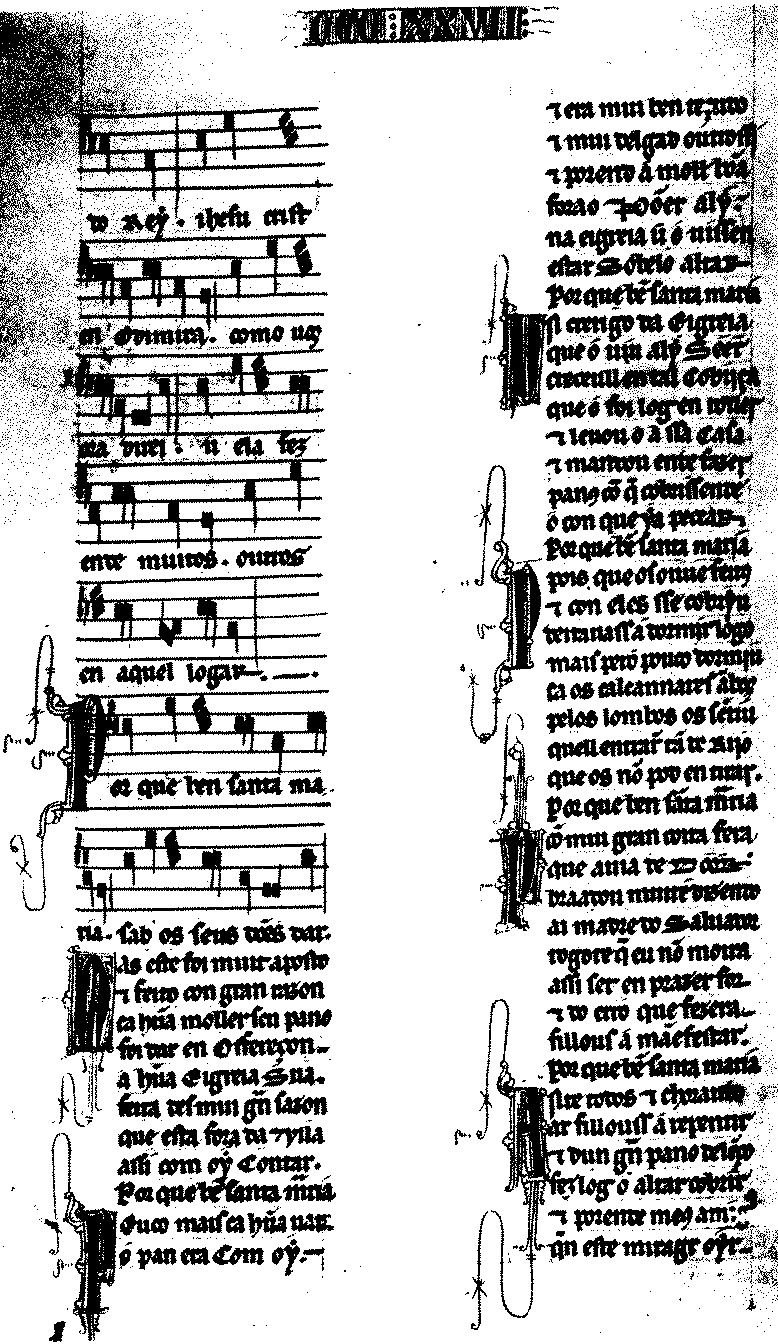 CCC:XXVII:
to Rey. ihesu crist
en Odimira. como uos
ora direi. u ela fez
ente muitos. outros
en aquel logar
Por que ben santa ma
ria. sab os seus dões dar.
as este foi muit aposto
⁊ feito con gran razon
ca hũa moller seu pano
foi dar en Offereçon.
a hũa Eigreia Sua.
feita desmui gñ sazon
que esta fora da uylla
assi com oý Contar.
Por que bẽ santa mña
Ouco mais ca hũa uar.
o pan era Com oý.
⁊ era mui ben teçudo
⁊ mui delgad outrossi
⁊ porend a moll bõa
forao põer alý.
na eigreia u o uissen
estar Sobelo altar
Por que bẽ santa maria
crerigo da Eigreia
que o uiu alý Seer
creceull ental Cobiiça
que o foi log en coller
⁊ leuou o a ssa Casa
⁊ mandou ente fazer
panos cõ q̃ cobrissente
o con que ýa peccar
Por que bẽ santa maria
pois que o sonue feito
⁊ con eles sse cobriu
deitanass a dormir logo
mais pero pouco dormiu
ca os calcannares ãbos
pelos lombos os sẽtiu
quell entrar tã de Rijo
que os nõ pod en tirar.
Por que ben sãta mña
cõ mui gran coita fera
que auia de
braadou muit e dizendo
ai madre do Saluador
rogote q̃ eu nõ moira
assi ser en prazer teu
⁊ do erro que fezera
fillouss a mãefestar.
Por que bẽ santa maria
todos ⁊ chorando
ar fillouss a repentir
⁊ dun gñ pano
fez log o altar cobrir
⁊ porente meos am
qñ este miragr oyr